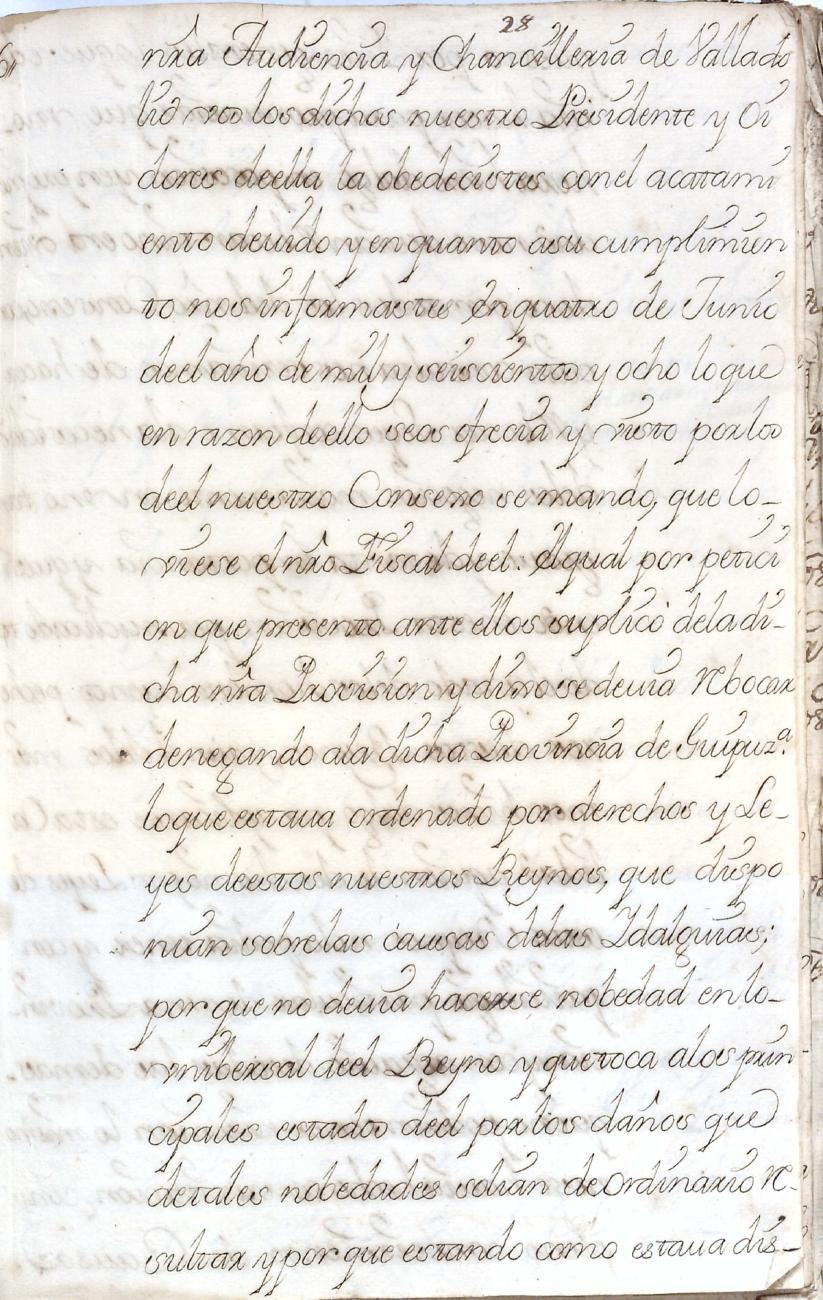 28
nr̃a Audiencia y Chancilleria de Vallado
lid vos los dichos nuestro Presidente y Oi
dores deella la obedecistes con el acatami
ento deuido y en quanto asu cumplimien
to nos informastes en quatro de Junio
deel año de mil y seiscientos y ocho lo que
en razon deello seos ofrecia y visto por los
deel nuestro Consexo se mando, que lo
viese el nr̃o Fiscal deel: el qual por petici
on que presento ante ellos suplicò dela di-
cha nr̃a Provision y dixo se deuia rebocar
denegando ala dicha Provincia de Guipuz.ª
loque estaua ordenado por derechos y Le-
yes deestos nuestros Reynos, que dispo
nian sobre las causas delas Idalguias;
por que no deuia hacerse nobedad en lo-
vnibersal deel Reyno y que toca alos prin-
cipales estados deel por los daños que
de tales nobedades solian de ordinario re-
sultar y por que estando como estaua dis-